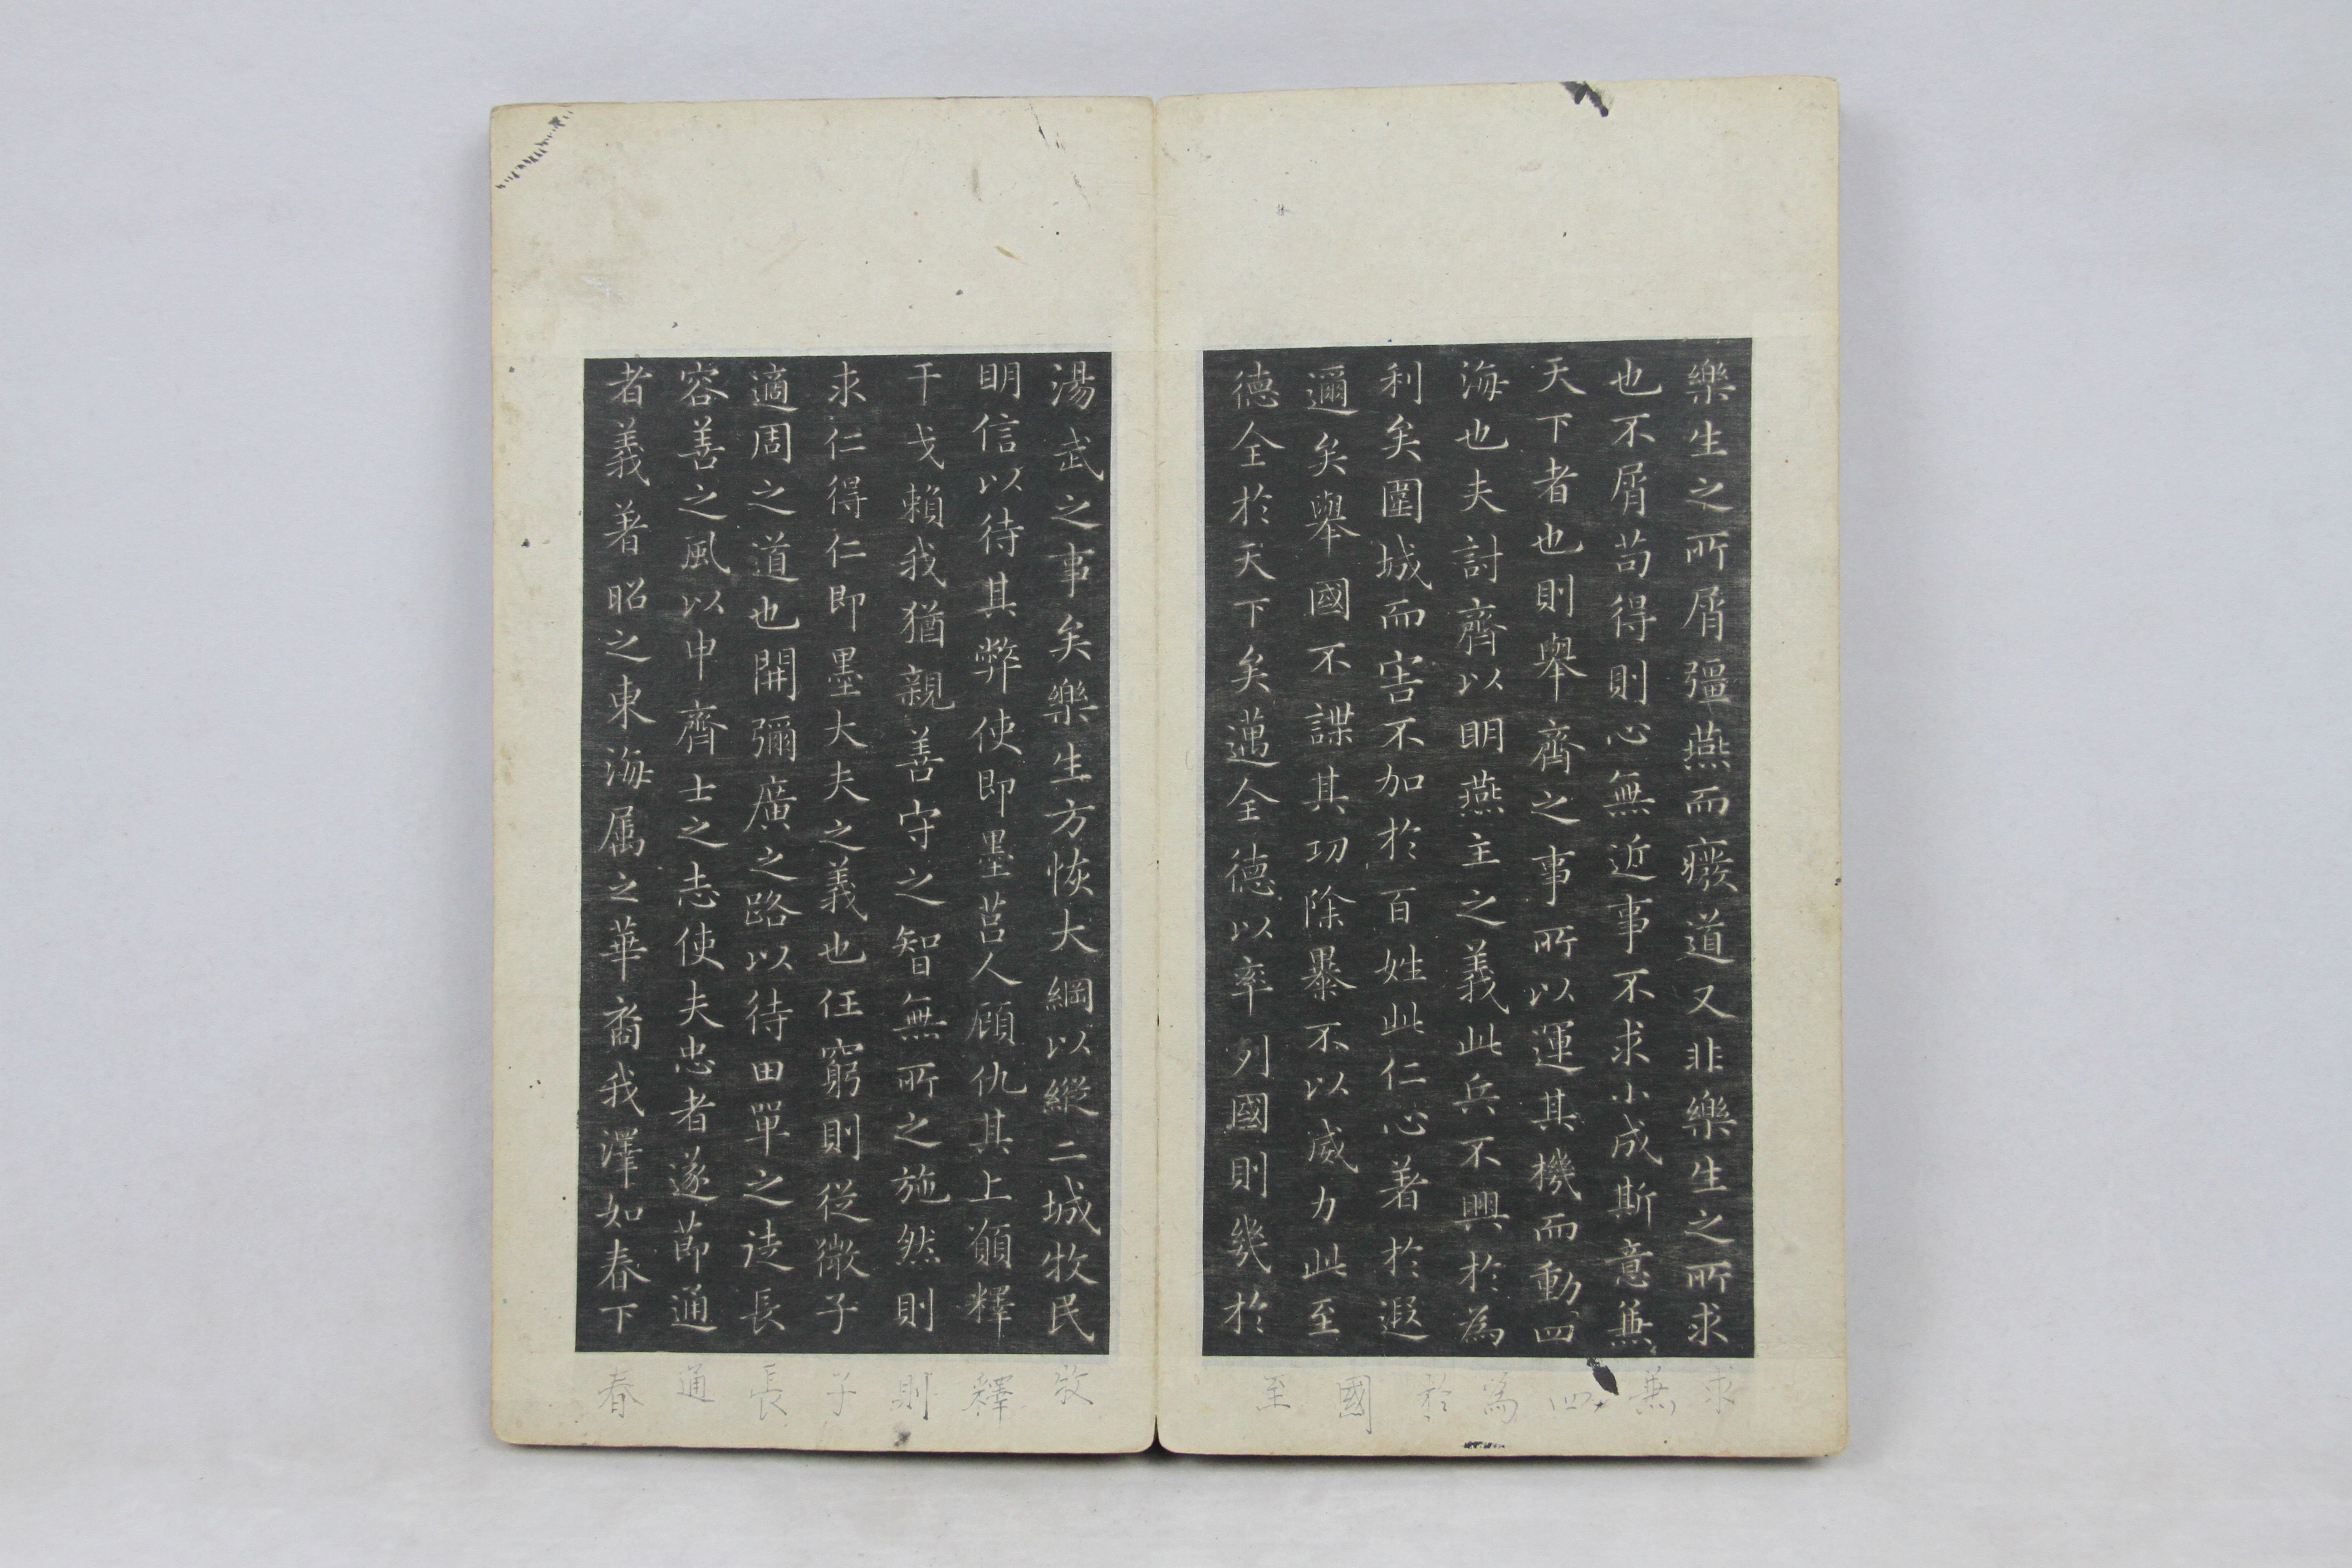 樂生之所屑彊燕而癈道又非樂生之所求
也不屑苟得則心無近事不求小成斯意兼
天下者也則舉齊之事所以運其機而動四
海也夫討齊以明燕主之義此兵不興於為
利矣圍城而害不加於百姓此仁心著於遐
邇矣舉國不謀其功除暴不以威力此至
德全於天下矣邁全德以率列國則幾於
湯武之事矣樂生方恢大綱以縱二城牧民
明信以待其弊使即墨莒人顧仇其上願釋
干戈賴我猶親善守之智無所之施然則
求仁得仁即墨大夫之義也任窮則從微子
適周之道也開彌廣之路以待田單之徒長
容善之風以申齊士之志使夫忠者遂節通
者義著昭之東海属之華裔我澤如春下
求 兼 四 為 於 國 至
牧 釋 則 子 長 通 春